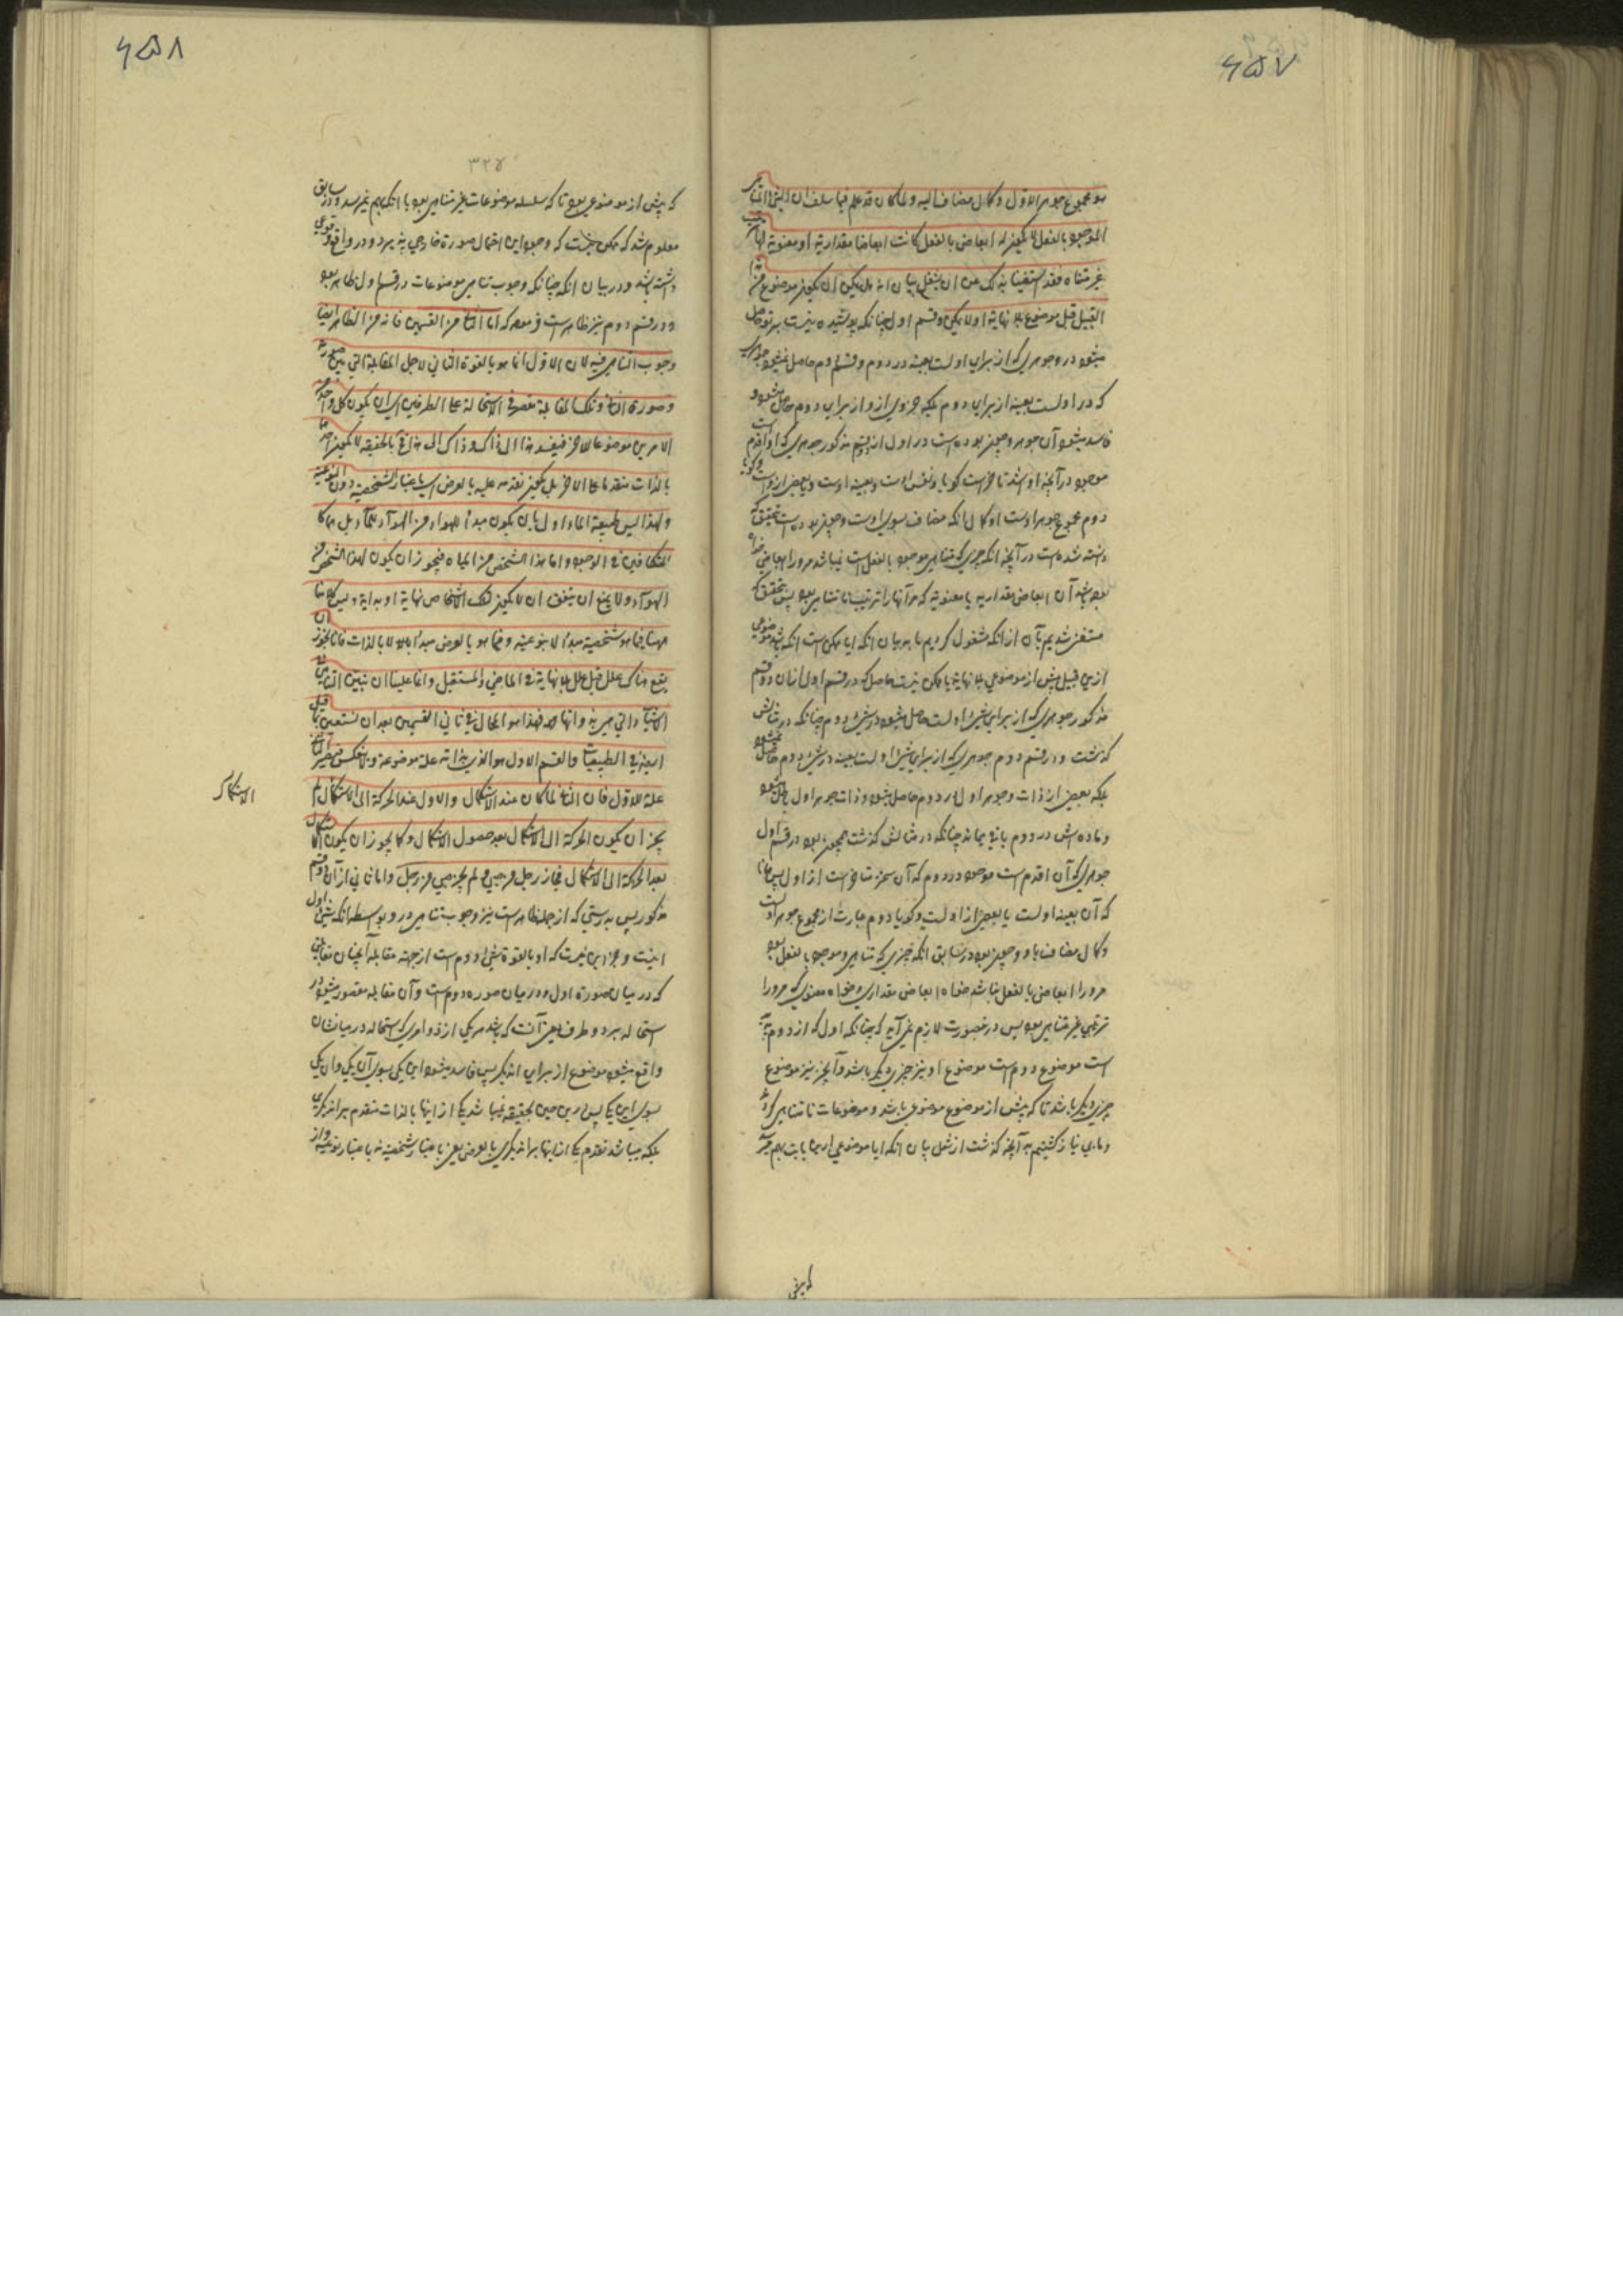 ۶۵۷
هو مجموع جوهر الاول و کمال مضاف الیه ولما کان قد علم فیما سلف ان الشئ المتناهی
الموجود بالفعل لا یکون له ابعاض بالفعل کانت ابعاضا مقداریة او معنویة لها ترتیب
غیر متناه فقد استغنینا بذلک عن ان نشتغل ببیان انه هل یمکن ان یکون موضوع من هذا
القبیل قبل موضوع بلا نهایة او لا یمکن و قسم اول چنانکه پوشیده نیست بر تو حاصل
میشود در و جوهری که از برای اولست بعینه در دوم و قسم دوم حاصل نمیشود جوهری
که در اولست بعینه از برای دوم بلکه جزوی از و از برای دوم حاصل میشود و
فاسد میشود آن جوهر و چون بوده است در اول از قسم مذکور جوهری که او اقدم است
موجود در آنچه او اشد تاخر است کویا و نفس اوست و بعینه اوست و یا بعض از وست و کویا
دوم مجموع جوهر اوست او کمال آنکه مضاف بسوی اوست و چون بوده است بتحقیق که
دانسته شده است در آنچه آنکه چیزی که متناهی موجود بالفعل است نمیباشد مر ورا ابعاض خواه
بوده باشد آن ابعاض مقداریه یا معنویه که مر آنها را ترتیب نامتناهی بود پس بتحقیق که
مستغنی شدیم بآن از آنکه مشغول کردیم ما به بیان آنکه ایا ممکن است آنکه باشد موضوعی
ازین قبیل پیش از موضوعی بلا نهایة یا ممکن نیست حاصل که در قسم اول از آن دو قسم
مذکور جوهری که از برای شئ اولست حاصل میشود در شئ دوم چنانکه در مثالش
کذشت و در قسم دوم جوهری که از برای شئ اولست بعینه در شئ دوم حاصل نمیشود
بلکه بعضی از ذات و جوهر اول در دوم حاصل میشود و ذات جوهر اول باطل میشود
و ماده اش در دوم باقی میماند چنانکه در مثالش کذشت و چون بود در قسم اول
جوهری که آن اقدم است موجود در دوم که آن متأخر است از اول پس همانا
که آن بعینه اولست یا بعضی از اولست و کویا دوم عبارت از مجموع جوهر اولست
و کمال مضاف باو و چون بود در سابق آنکه چیزی که متناهی و موجود بالفعل بود
مر ورا ابعاض بالفعل نباشد خواه ابعاض مقداری و خواه معنوی که مر ورا
ترتیبی غیر متناهی بود پس درینصورت لازم نمی آید که چنانکه اول که از دوم
است موضوع دوم است موضوع او نیز چیزی دیکر باشد و آنچیز نیز موضوع
چیزی دیکر باشد تا که پیش از موضوع موضوعی باشد و موضوعات نامتناهی کردد
و ما بی نیاز کشتیم به آنچه کذشت از شغل بیان آنکه ایا موضوعی
۶۵۸
۳۲۴
که پیش از موضوعی بود تا که سلسله موضوعات غیر متناهی بود یا آنکه بهم نمیرسد و در سابق
معلوم شد که ممکن نیست که وجود این احتمال صورة خارجی پذیرد و در واقع وقوعی
داشته باشد و در بیان آنکه چنانکه وجوب تناهی موضوعات در قسم اول ظاهر بود
و در قسم دوم نیز ظاهر است فرموده که اما الثانی من القسمین فانه من الظاهر ایضا
وجوب التناهی فیه لان الاول انما هو بالقوة الثانی لاجل المقابلة التی بین صورته
و صورة الثانی و تلک المقابلة تقتصر فی الاستحالة علی الطرفین بان یکون کل واحد
الامرین موضوعا للآخر فیفسد هذا الی ذاک و ذاک الی هذا فبالحقیقة لا یکون احدهما
بالذات متقدما علی الآخر بل یکون تقدمه علیه بالعرض ای باعتبار الشخصیة دون النوعیة
ولهذا لیس طبیعة الماء اولی بان یکون مبدأ للهواء من الهواء للماء بل هما کا
المتکافئین فی الوجود و اما هذا الشخص من الماء فیجوز ان یکون لهذا الشخص من
الهواء ولا یمنع ان یتفق ان لا یکون لتلک الاشخاص نهایة او بدایة ولیس کلامنا
ههنا فیما هو بشخصیته مبدأ لا بنوعیته و فیما هو بالعرض مبدأ لا بالذات فانا نجوز ان
یقع هناک علل قبل علل بلا نهایة فی الماضی والمستقبل وانما علینا ان نبین التناهی فی
الاشیاء التی هی بذواتها علل فهذا هو الحال فی ثانی القسمین بعد ان نستعین بما قیل
ایضا فی الطبیعیات والقسم الاول هو الذی بذاته علة موضوعة ولا ینعکس فیصیر الثانی
علة للاول فان الثانی لما کان عند الاستکمال والاول عند الحرکة الی الاستکمال لم
یجز ان یکون الحرکة الی الاستکمال بعد حصول الاستکمال وکما یجوز ان یکون الاستکمال
بعد الحرکة الی الاستکمال فجاز رجل من صبی ولم یجز صبی من رجل و اما ثانی از آن دو قسم
مذکور پس به درستی که از جمله ظاهرست نیز وجوب تناهی در و بواسطه آنکه شئ اول
اینست و جز این نیست که او بالقوة شئ دوم است از جهة مقابله آنچنان مقابلتی
که در میان صورة اول و در میان صوره دوم است و آن مقابله مقصور میشود در
استحاله بر دو طرف یعنی آنست که باشد هر یکی از دو امری که استحاله در میانشان
واقع میشود موضوع از برای آن دیکر پس فاسد میشود این یکی بسوی آن یکی و آن یکی
بسوی این یکی پس درین حین بحقیقه نمیباشد یکی از اینها بالذات متقدم بر آن دیکری
بلکه میباشد تقدم یکی از اینها بر آن دیکری بالعرض یعنی باعتبار شخصیة نه باعتبار نوعیة و از
الاستکمال